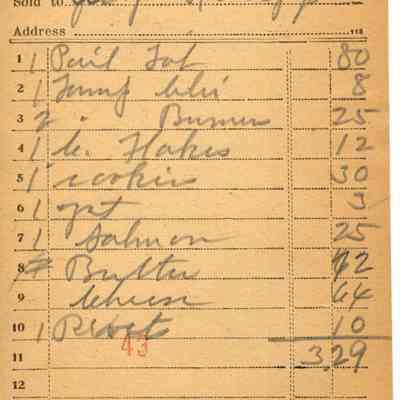 Sold to
Address 118
1 1 Pail Tot 80
2 1 Lamp chi 8
3 2 " Burners 25
4 1 c. Flakes 12
5 1 cookies 30
6 1 3
7 1 Salmon 25
8 Butter 42
9 Cheese 64
10 1 10
43
11 3.29
12